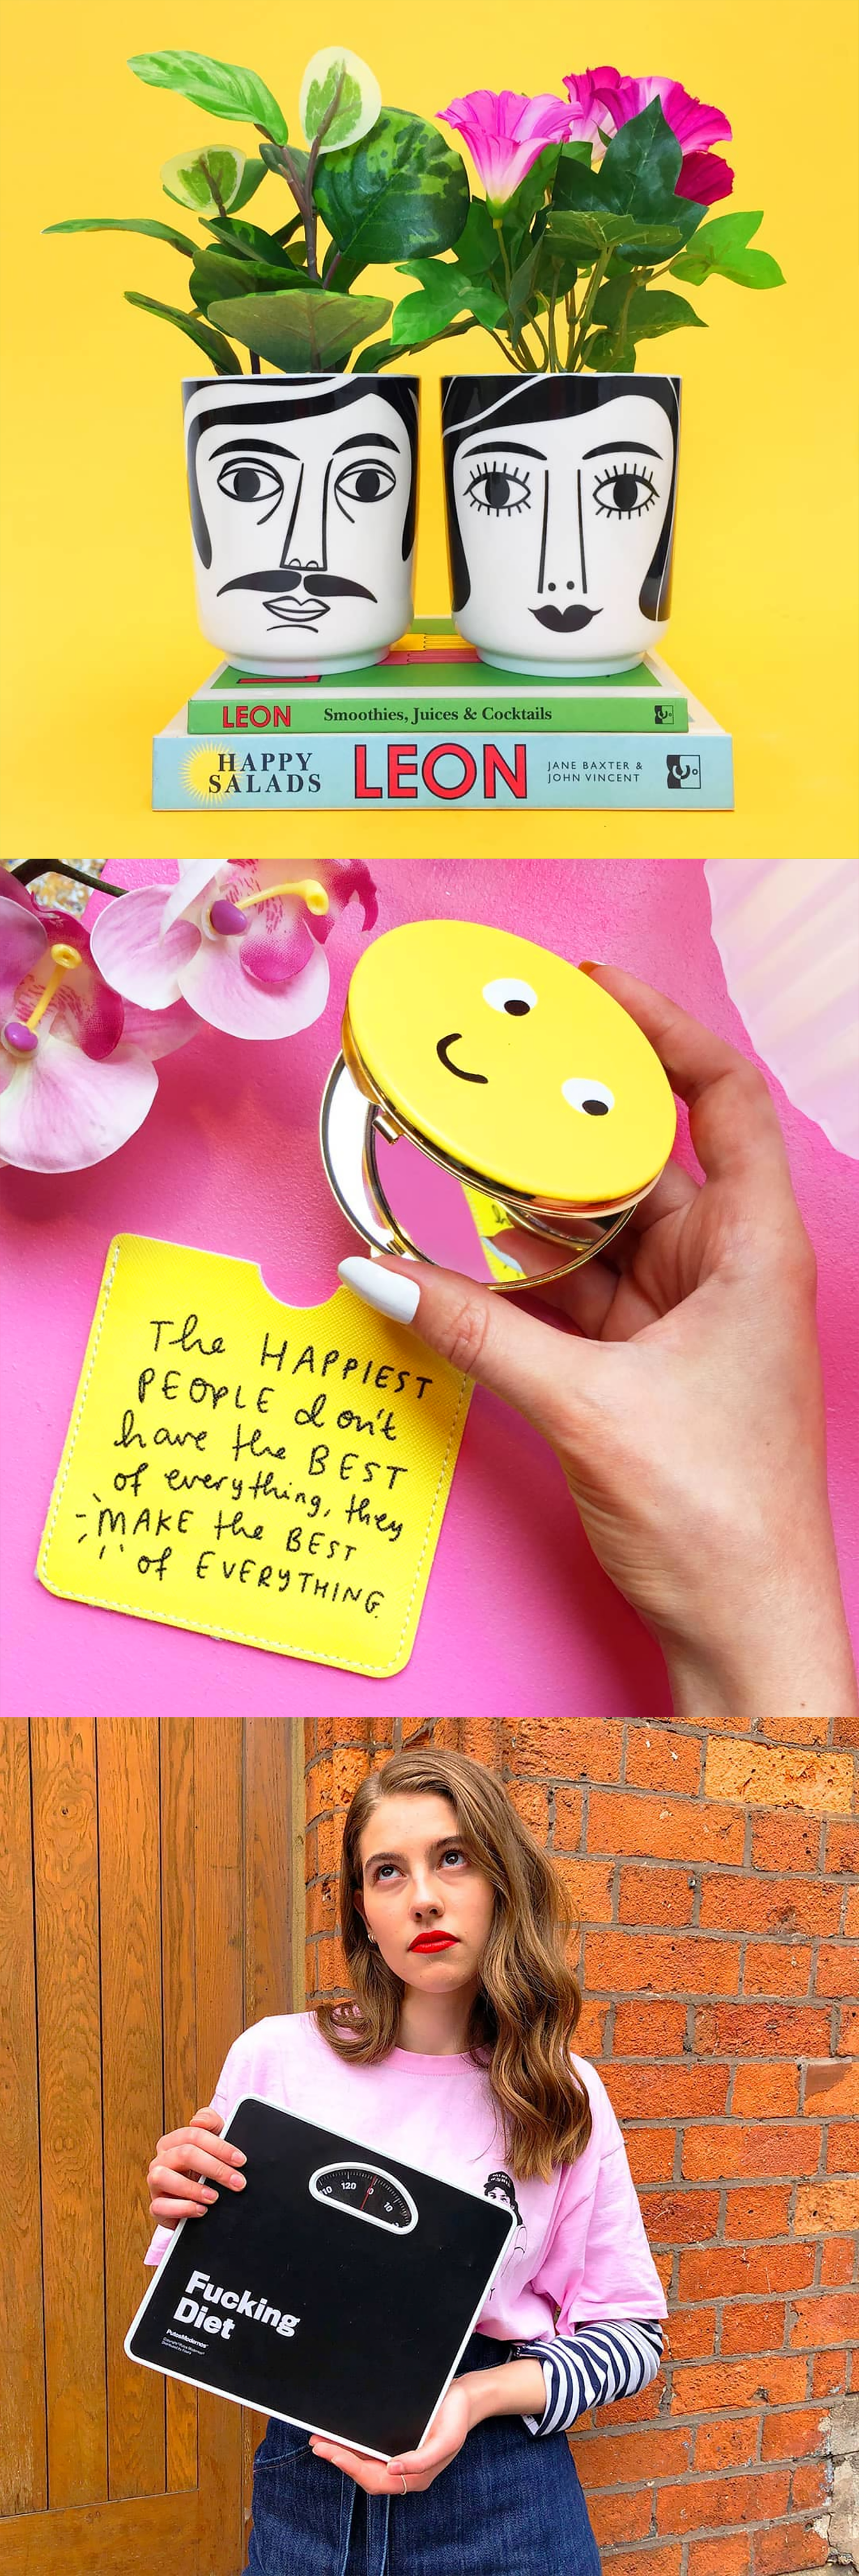 LEON Smoothies, Juices & Cocktails
HAPPY
SALADS
LEON
JANE BAXTER &
JOHN VINCENT
The HAPPIEST
PEOPLE don't
have the BEST
of everything, they
MAKE the BEST
of EVERYTHING.
10 120 0 10
Fucking
Diet
PutosModernos